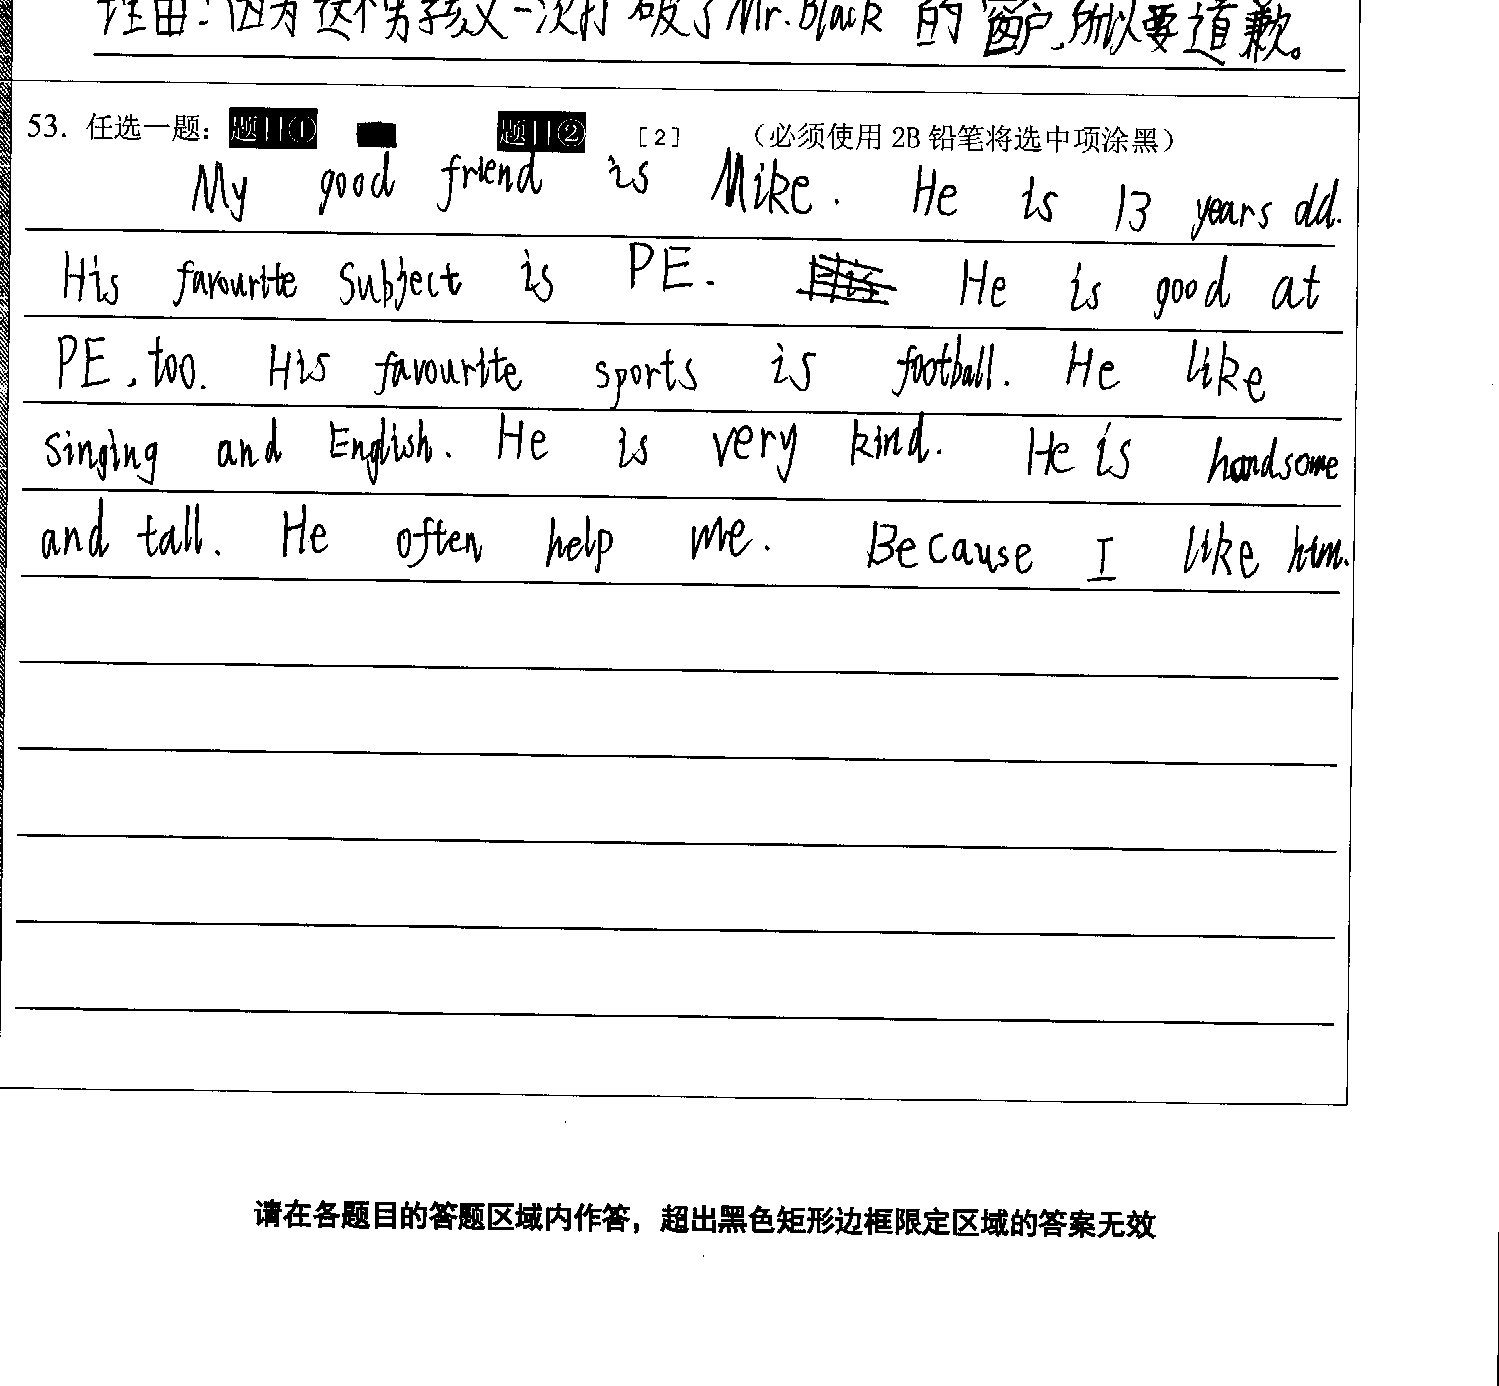 理由:因为这个男孩又一次打破了Mr.Black 的窗户,所以要道歉。
53. 任选一题: 题目① 题目② [2] (必须使用 2B 铅笔将选中项涂黑)
My good friend is Mike. He is 13 years old.
His favourite subject is PE. He is good at
PE, too. His favourite sports is football. He like
singing and English. He is very kind. He is handsome
and tall. He often help me. Because I like him.
请在各题目的答题区域内作答，超出黑色矩形边框限定区域的答案无效